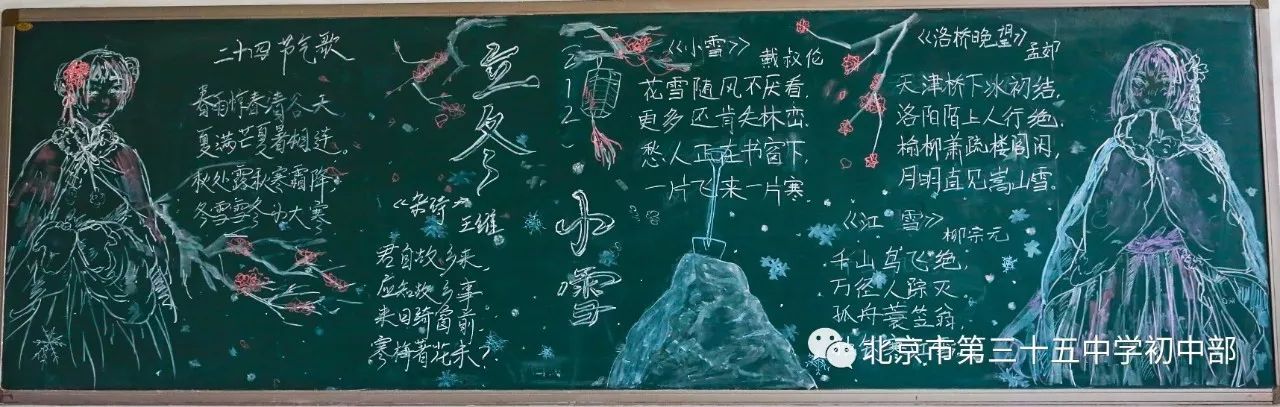 二十四节气歌
春雨惊春清谷天
夏满芒夏暑相连。
秋处露秋寒霜降
冬雪雪冬小大寒
立冬·小雪
212
《杂诗》
王维
君自故乡来
应知故乡事
来日绮窗前
寒梅著花未?
《小雪》 戴叔伦
花雪随风不厌看,
更多还肯失林峦.
愁人正在书窗下,
一片飞来一片寒.
《洛桥晚望》 孟郊
天津桥下冰初结,
洛阳陌上人行绝.
榆柳萧疏楼阁闲,
月明直见嵩山雪.
《江 雪》 柳宗元
千山鸟飞绝,
万径人踪灭.
孤舟蓑笠翁,
北京市第三十五中学初中部